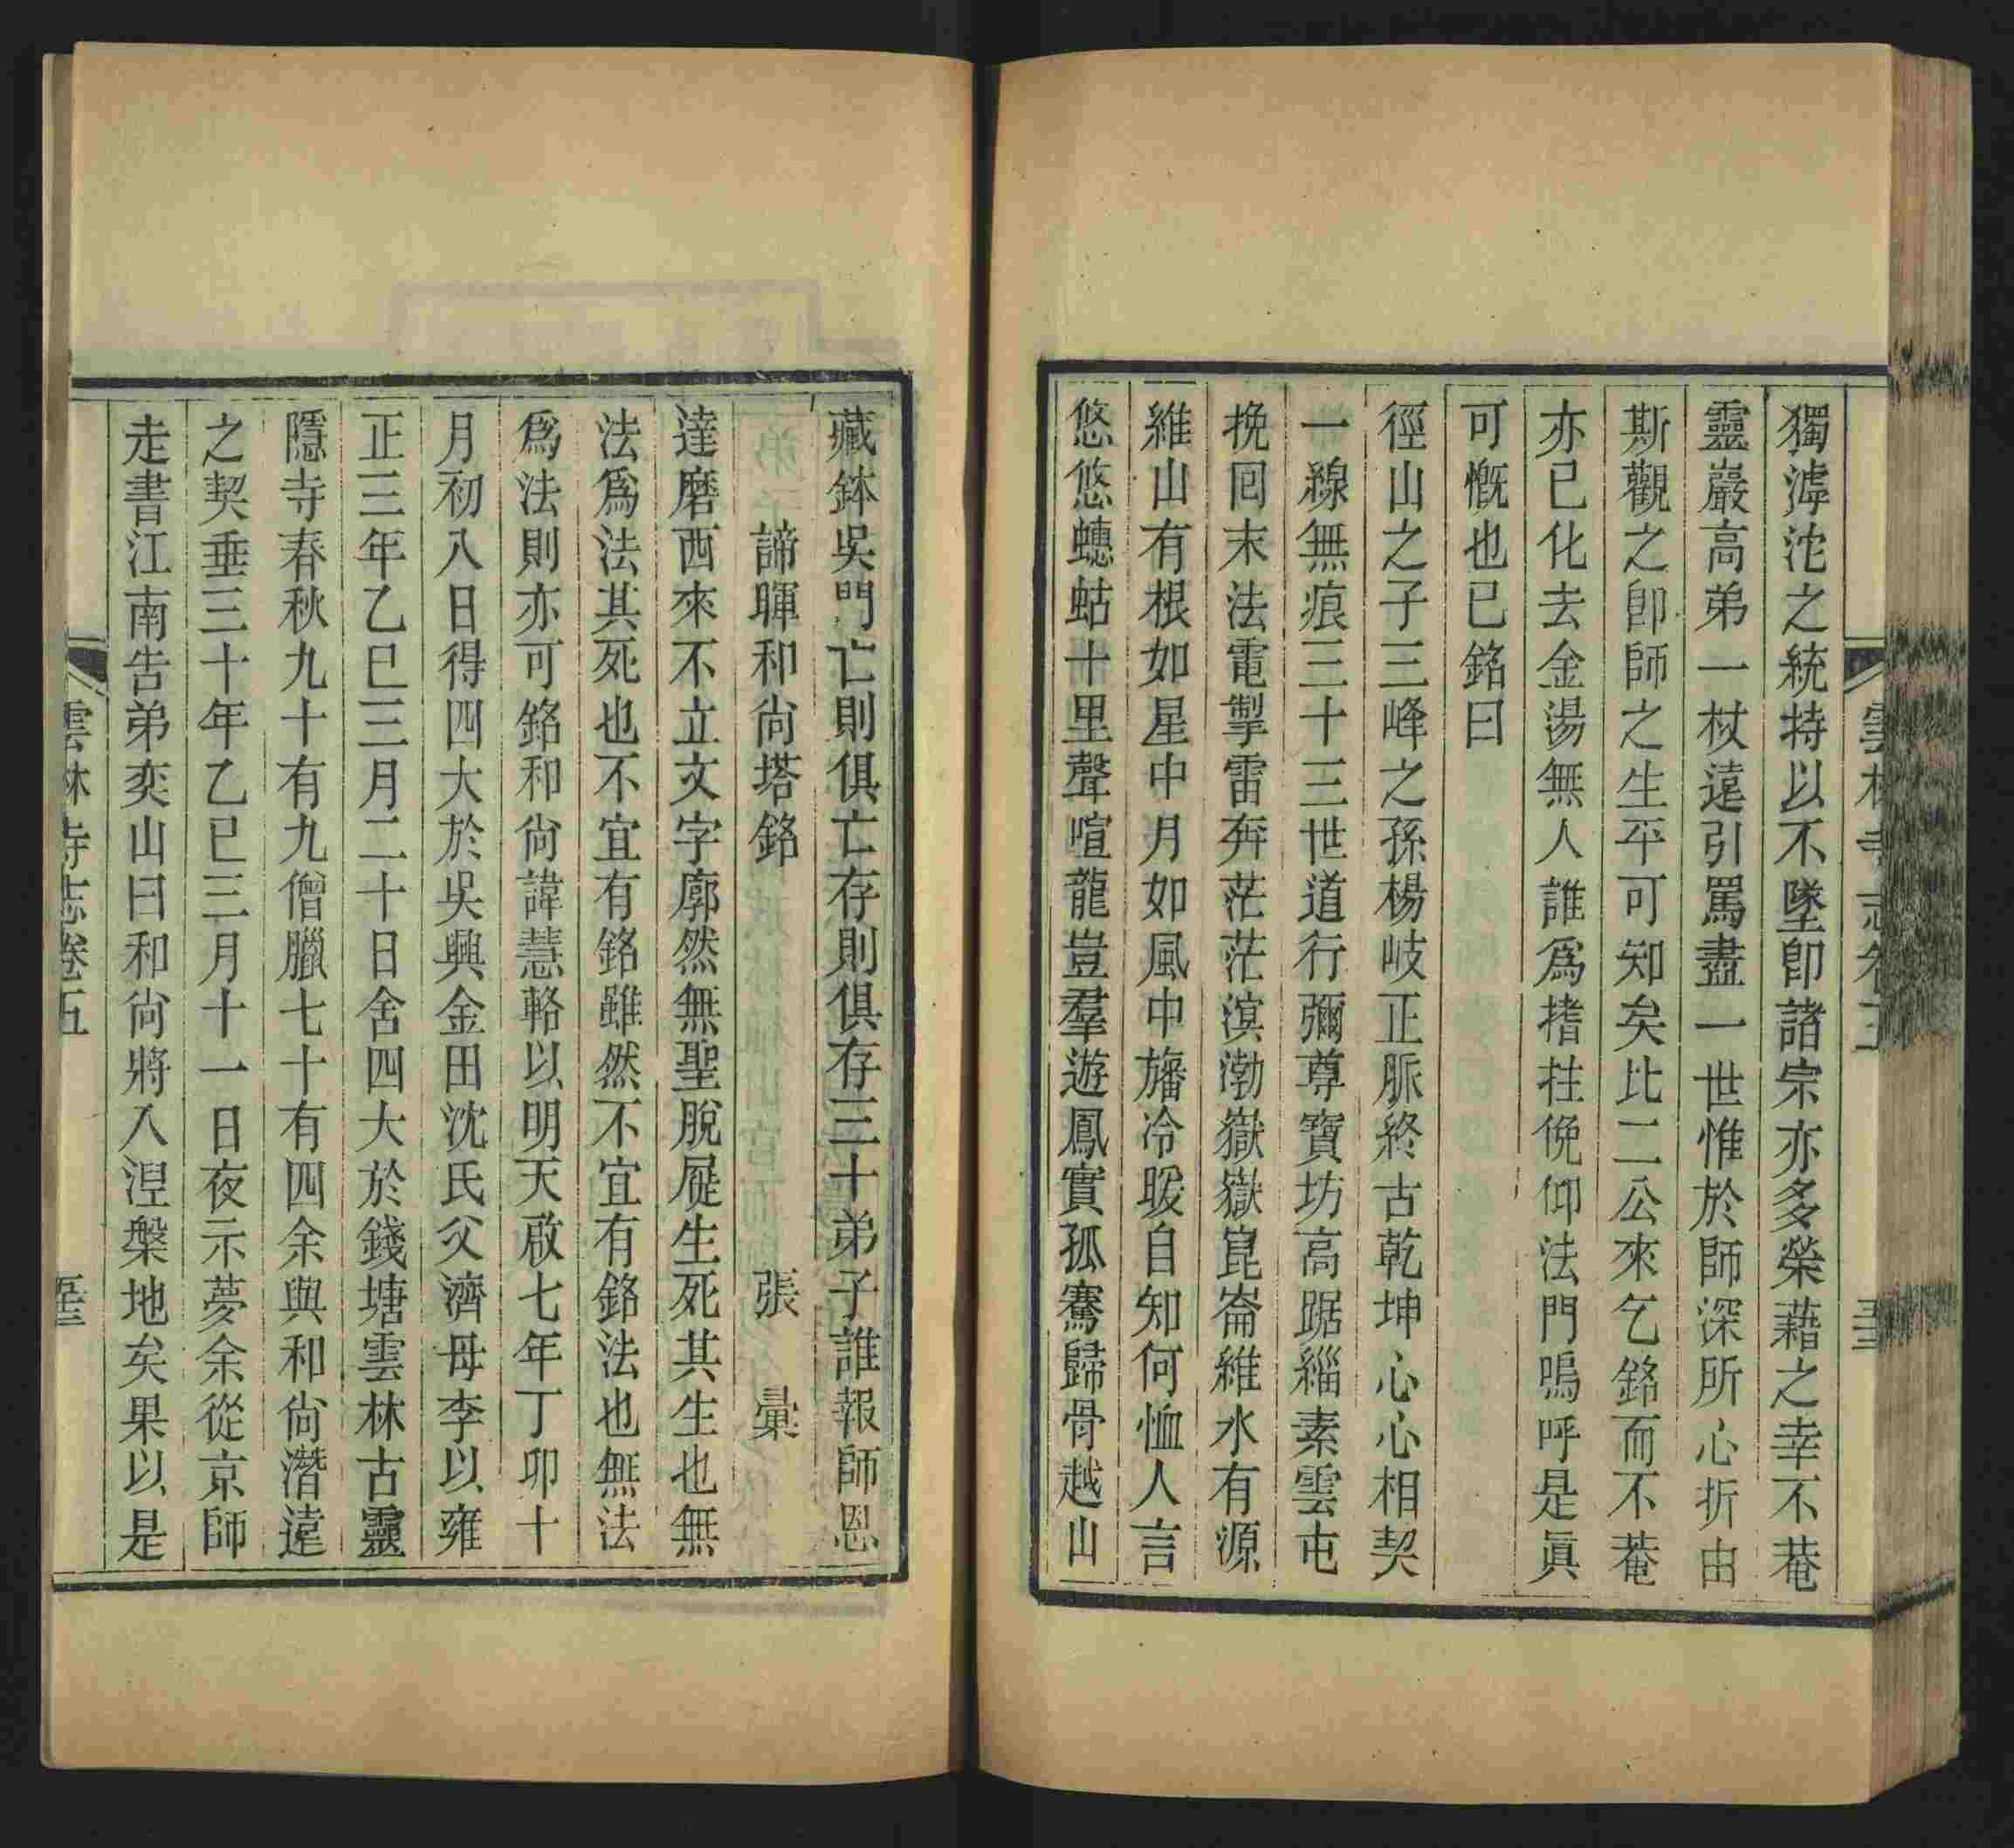 獨滹沱之統持以不墜卽諸宗亦多榮藉之幸不菴
靈巖高弟一杖遠引罵盡一世惟於師深所心折由
斯觀之卽師之生平可知矣比二公來乞銘而不菴
亦已化去金湯無人誰爲撍拄俛仰法門嗚呼是眞
可慨也已銘曰
徑山之子三峰之孫楊岐正脈終古乾坤心心相契
一線無痕三十三世道行彌尊寶坊高踞緇素雲屯
挽回末法電掣雷奔茫茫溟渤嶽嶽崑崙維水有源
維山有根如星中月如風中旛冷暖自知何恤人言
悠悠蟪蛄十里聲喧龍豈羣遊鳳實孤騫歸骨越山
藏鉢吳門亡則俱亡存則俱存三十弟子誰報師恩
諦暉和尙塔銘 張彙
達磨西來不立文字廓然無聖脫屣生死其生也無
法爲法其死也不宜有銘雖然不宜有銘法也無法
爲法則亦可銘和尙諱慧輅以明天啟七年丁卯十
月初八日得四大於吳興金田沈氏父濟母李以雍
正三年乙巳三月二十日舍四大於錢塘雲林古靈
隱寺春秋九十有九僧臘七十有四余與和尙潛遠
之契垂三十年乙巳三月十一日夜示夢余從京師
走書江南告弟奕山曰和尙將入涅槃地矣果以是
雲林寺志卷五